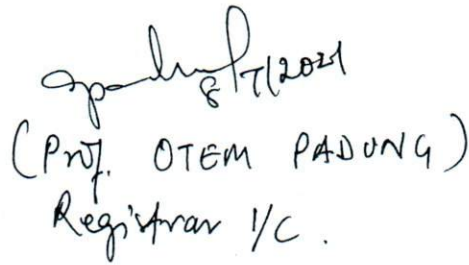 8/7/2021
(Prof. OTEM PADUNG)
Registrar I/C.